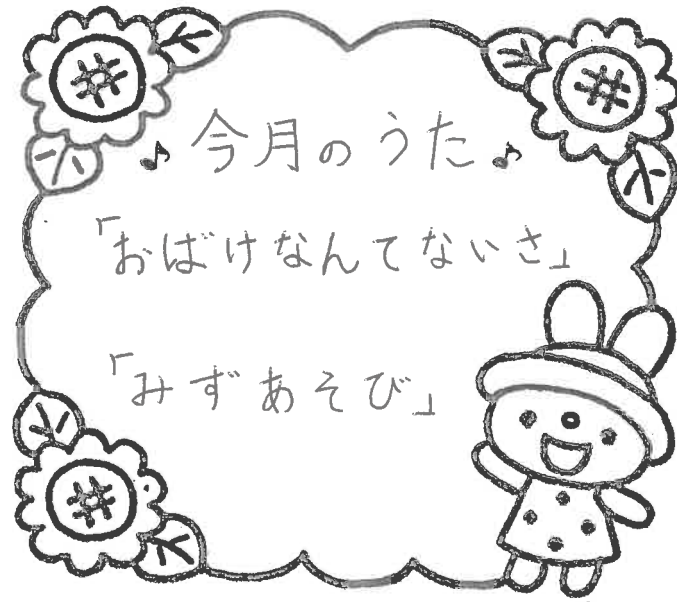 ♪今月のうた♪
「おばけなんてないさ」
「みずあそび」